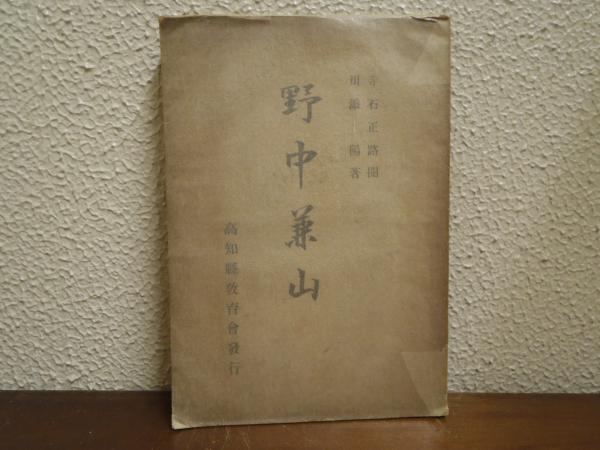 寺石正路閲
川添陽著
野中兼山
高知縣教育會發行